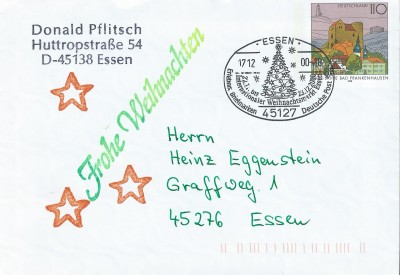 Donald Pflitsch
Huttropstraße 54
D-45138 Essen
Frohe Weihnachten
ESSEN
17.12 00-18
Internationaler Weihnachtsmarkt Essen
Erlebnis Briefmarken Deutsche Post
45127
DEUTSCHLAND 110
BAD FRANKENHAUSEN
Herrn
Heinz Eggenstein
Graffweg. 1
45276 Essen